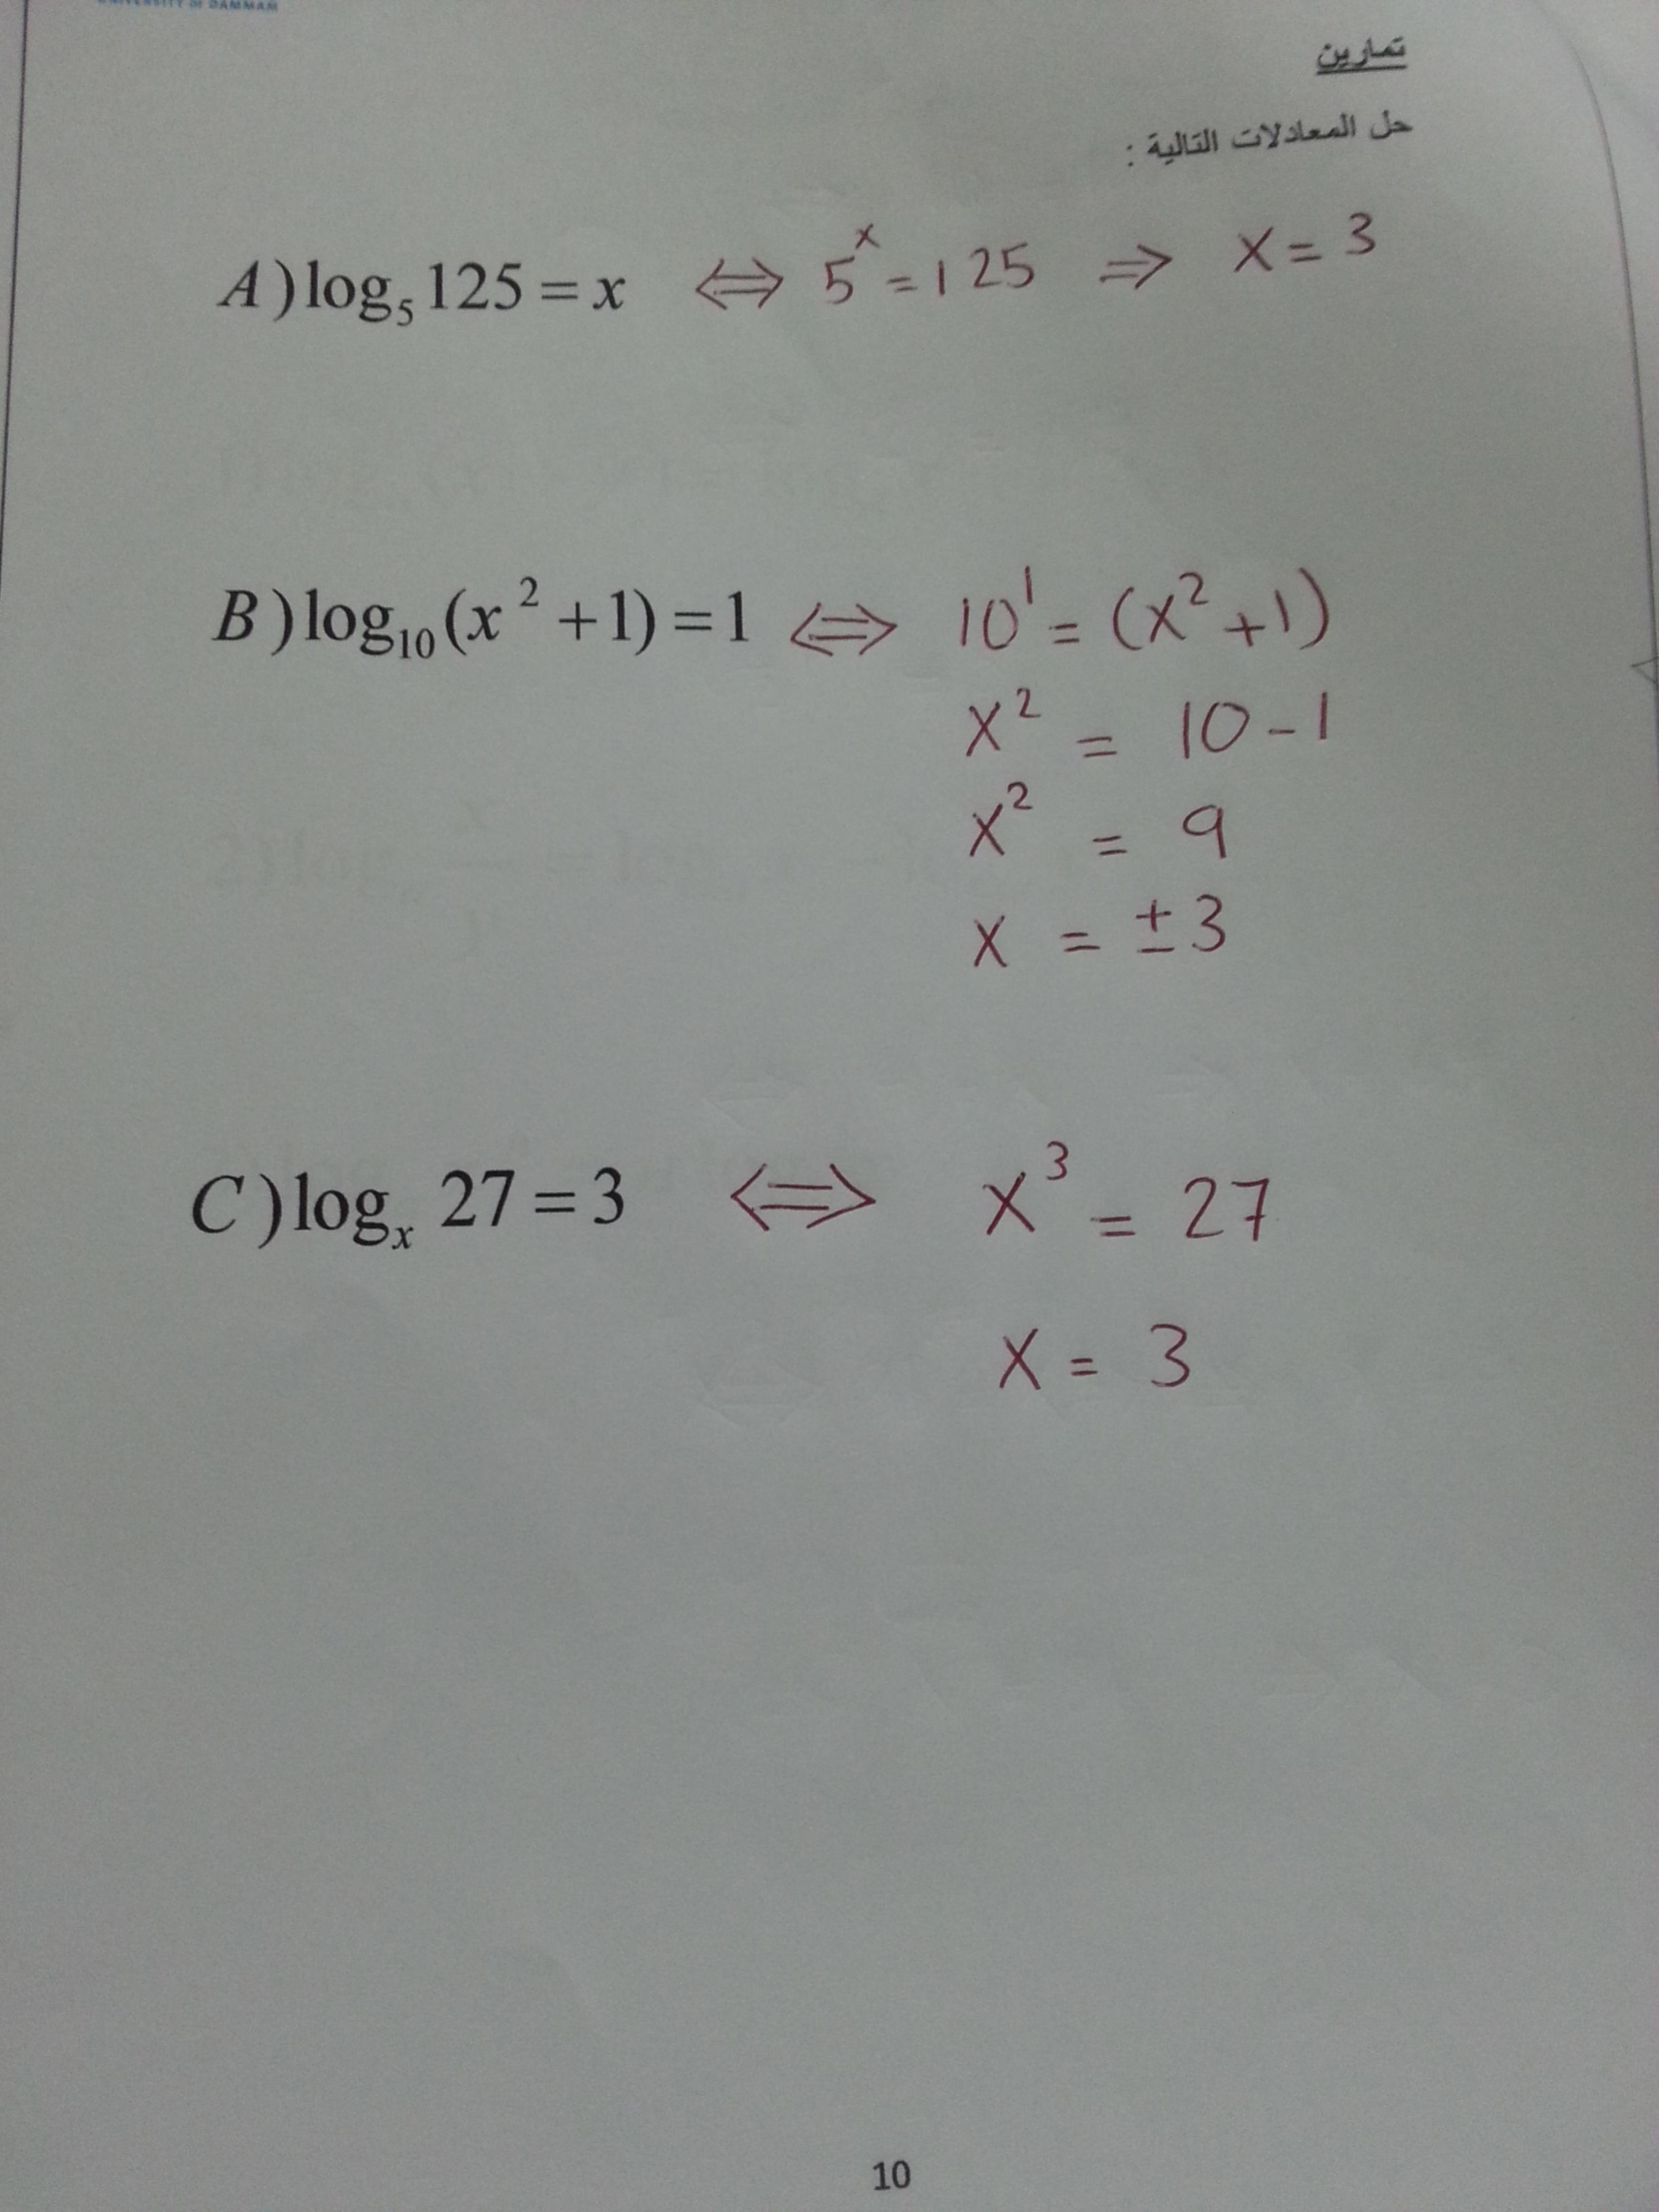 UNIVERSITY of DAMMAM
تمارين
حل المعادلات التالية :
A) log₅ 125 = x ⇔ 5ˣ = 125 ⇒ x = 3
B) log₁₀(x² + 1) = 1 ⇔ 10¹ = (x² + 1)
x² = 10 - 1
x² = 9
x = ± 3
C) logₓ 27 = 3 ⇔ x³ = 27
x = 3
10